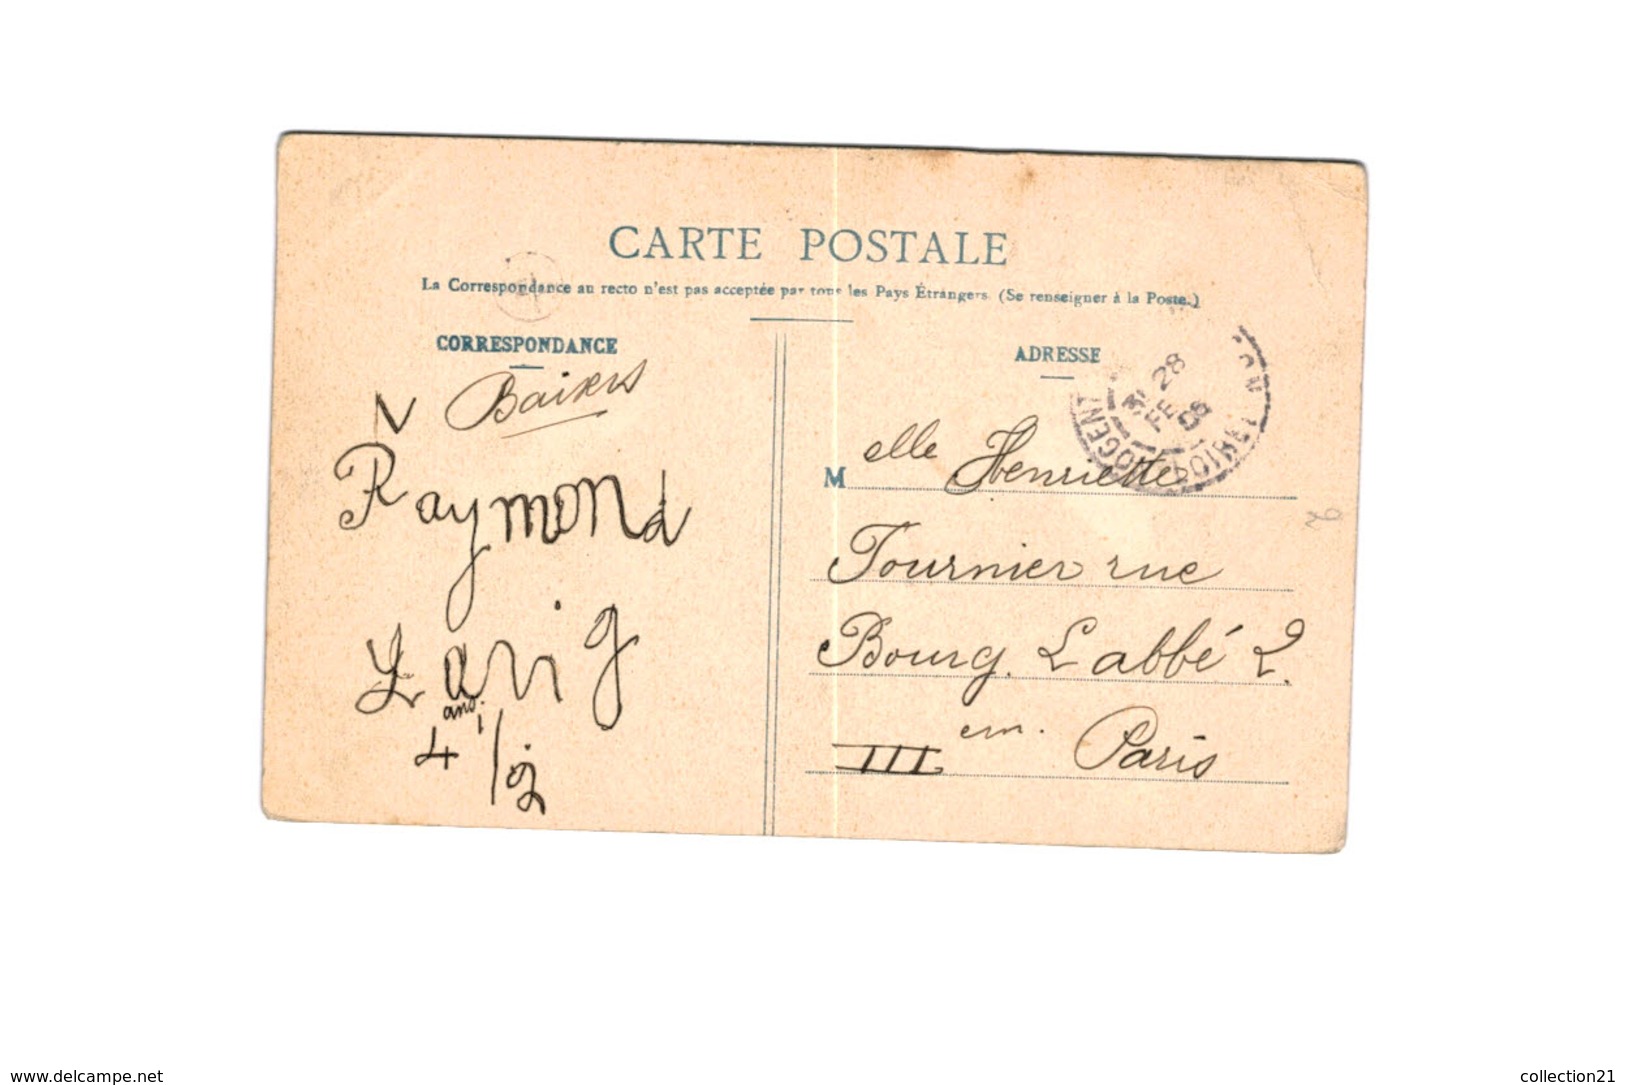 CARTE POSTALE
La Correspondance au recto n'est pas acceptée par tous les Pays Étrangers. (Se renseigner à la Poste.)
CORRESPONDANCE
Baisers
Raymond
Lavig
ans.
4 1/2
ADRESSE
M elle Henriette
Tournier rue
Bourg. Labbé 2
III em. Paris
28
FE
NOGENT
LOIRET
delcampe.net
collection21